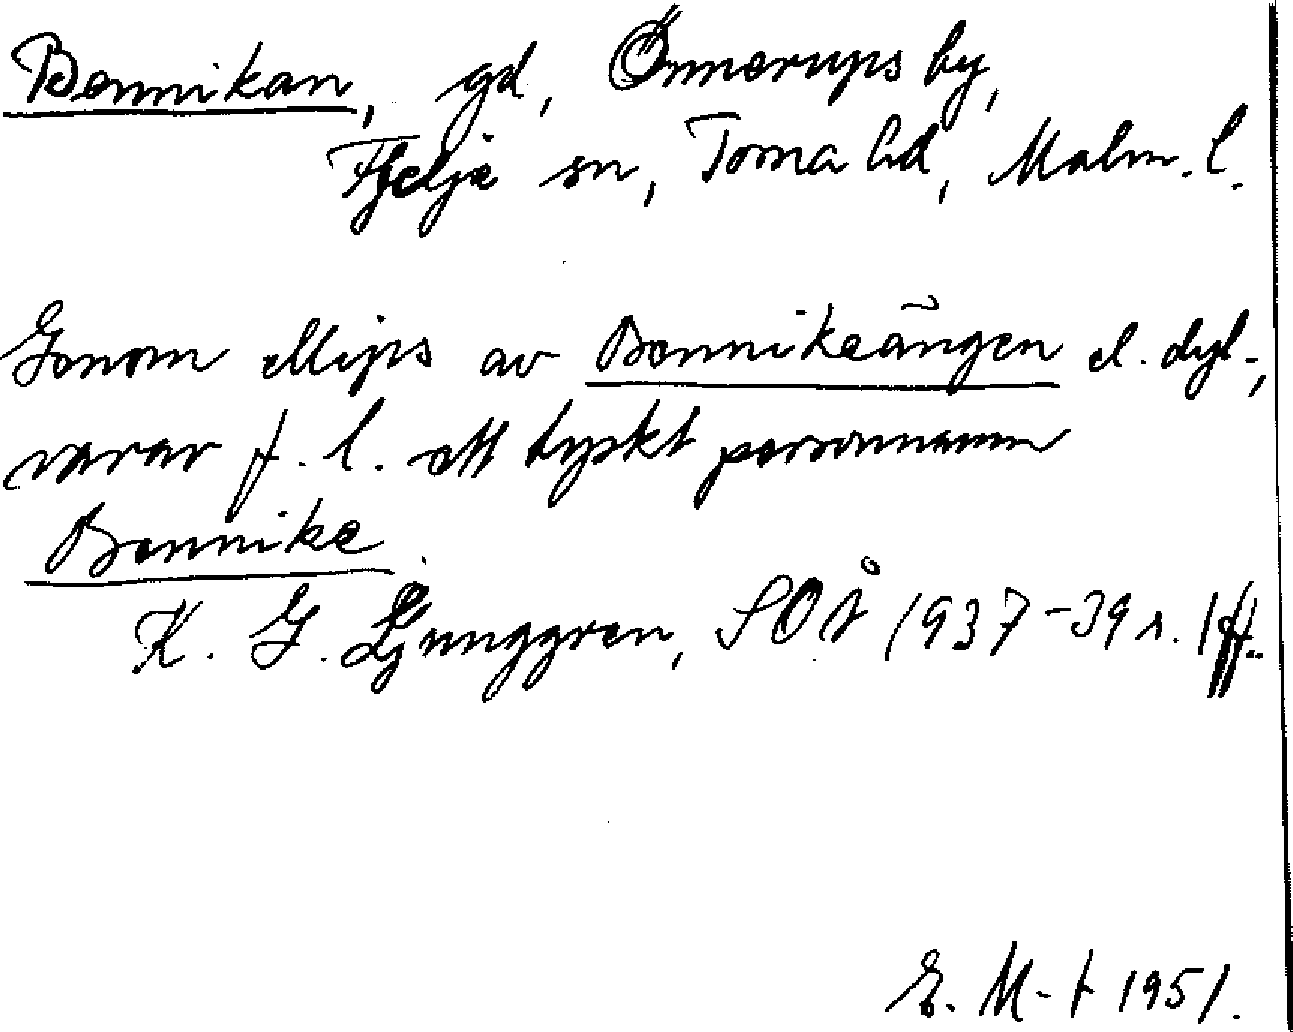 Bennikan, gd, Önnerups by,
Fjelie sn, Torna hd, Malm. l.
Genom ellips av Bennikeängen el. dyl.,
varav f. l. ett tyskt personnamn
Bennike
K. G. Ljunggren, SOÅ 1937-39 s. 1 ff.
E. M-t 1951.